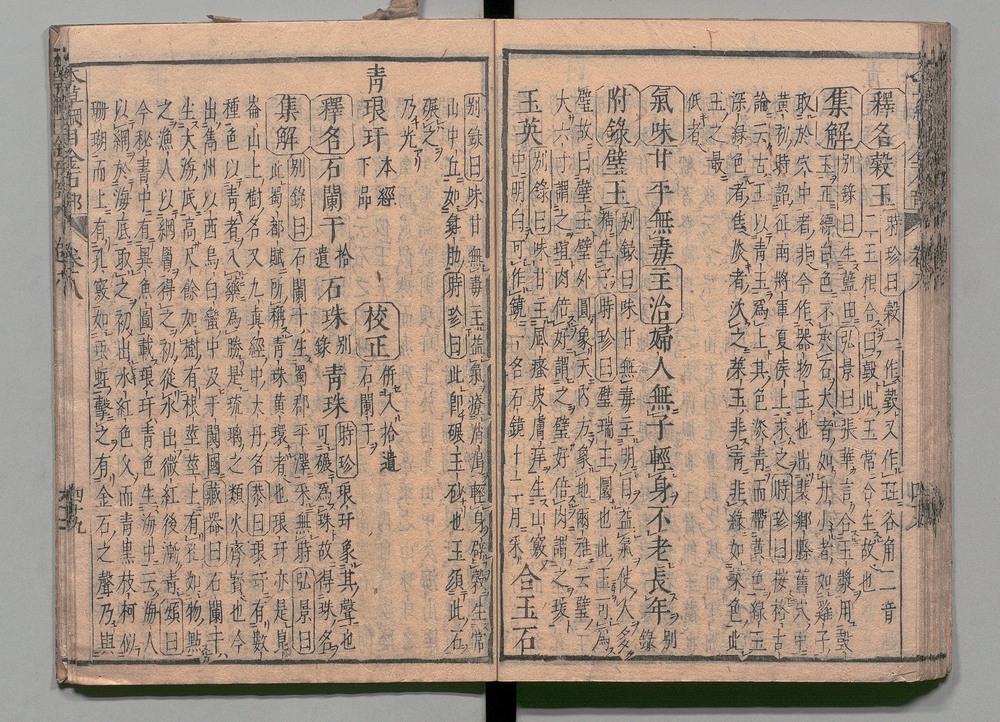 釋名瑴玉 時珍曰瑴一作瑴又作珏谷角二音
二玉相合曰瑴此玉常合生故也
集解 別錄曰生藍田 弘景曰張華言合玉漿用瑴
玉正縹白色不夾石大者如升小者如雞子
取於穴中者非今作器物玉也出襄鄉縣舊穴中
黃初時詔征南將軍夏侯上求之 時珍曰按格古
論云古玉以青玉爲上其色淡青而帶黃色綠玉
深綠色者佳淡者次之菜玉非青非綠如菜色此
玉之最
低者
氣味甘平無毒 主治婦人無子輕身不老長年 別錄
附錄璧玉 別錄曰味甘無毒主明目益氣使人多
精生子 時珍曰璧瑞玉圜也此玉可爲
璧故曰璧玉璧外圓象天內方象地爾雅云璧
大六寸謂之瑄肉倍好謂之璧好倍肉謂之瑗
玉英 別錄曰味甘主風瘙皮膚痒生山竅
中明白可作鏡一名石鏡十二月采 合玉石
別錄曰味甘無毒主益氣療消渴輕身辟穀生常
山中丘如彘肪 時珍曰此卽碾玉砂也玉須此石
碾之
乃光
青琅玕 本經下品 校正 併入拾遺石闌干
釋名石闌干 拾遺 石珠 別錄 青珠 時珍曰琅玕象其聲也
可碾爲珠故得珠名
集解 別錄曰石闌干生蜀郡平澤采無時 弘景曰
此蜀都賦所稱青珠黃環者也琅玕亦是崑
崙山上樹名又九真經中大丹名 恭曰琅玕有數
種色以青者入藥爲勝是琉璃之類火齊寶也今
出嶲州以西烏白蠻中及于闐國 藏器曰石闌干
生大海底高尺餘如樹有根莖莖上有孔如物點
之漁人以網罾得之初從水出微紅後漸青 頌曰
今秘書中有異魚圖載琅玕青色生海中云海人
以網於海底取之初出水紅色久而青黑枝柯似
珊瑚而上有孔竅如虫蛀擊之有金石之聲乃與